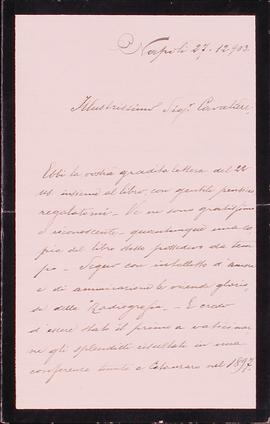 Napoli 27.12.902
Illustrissimo Sigr. Cavaliere,
Ebbi la vostra gradita lettera del 22
us. insieme al libro, con gentile pensiero
regalatomi - Ve ne sono gratissimo
e riconoscente, quantunque una co-
pia del libro stesso possedevo da tem-
po - Seguo con intelletto d'amore
e di ammirazione le vicende glorio-
se della "Radiografia - E credo
d'essere stato il primo a vaticinar-
ne gli splendidi risultati in una
conferenza tenuta a Catanzaro nel 1897